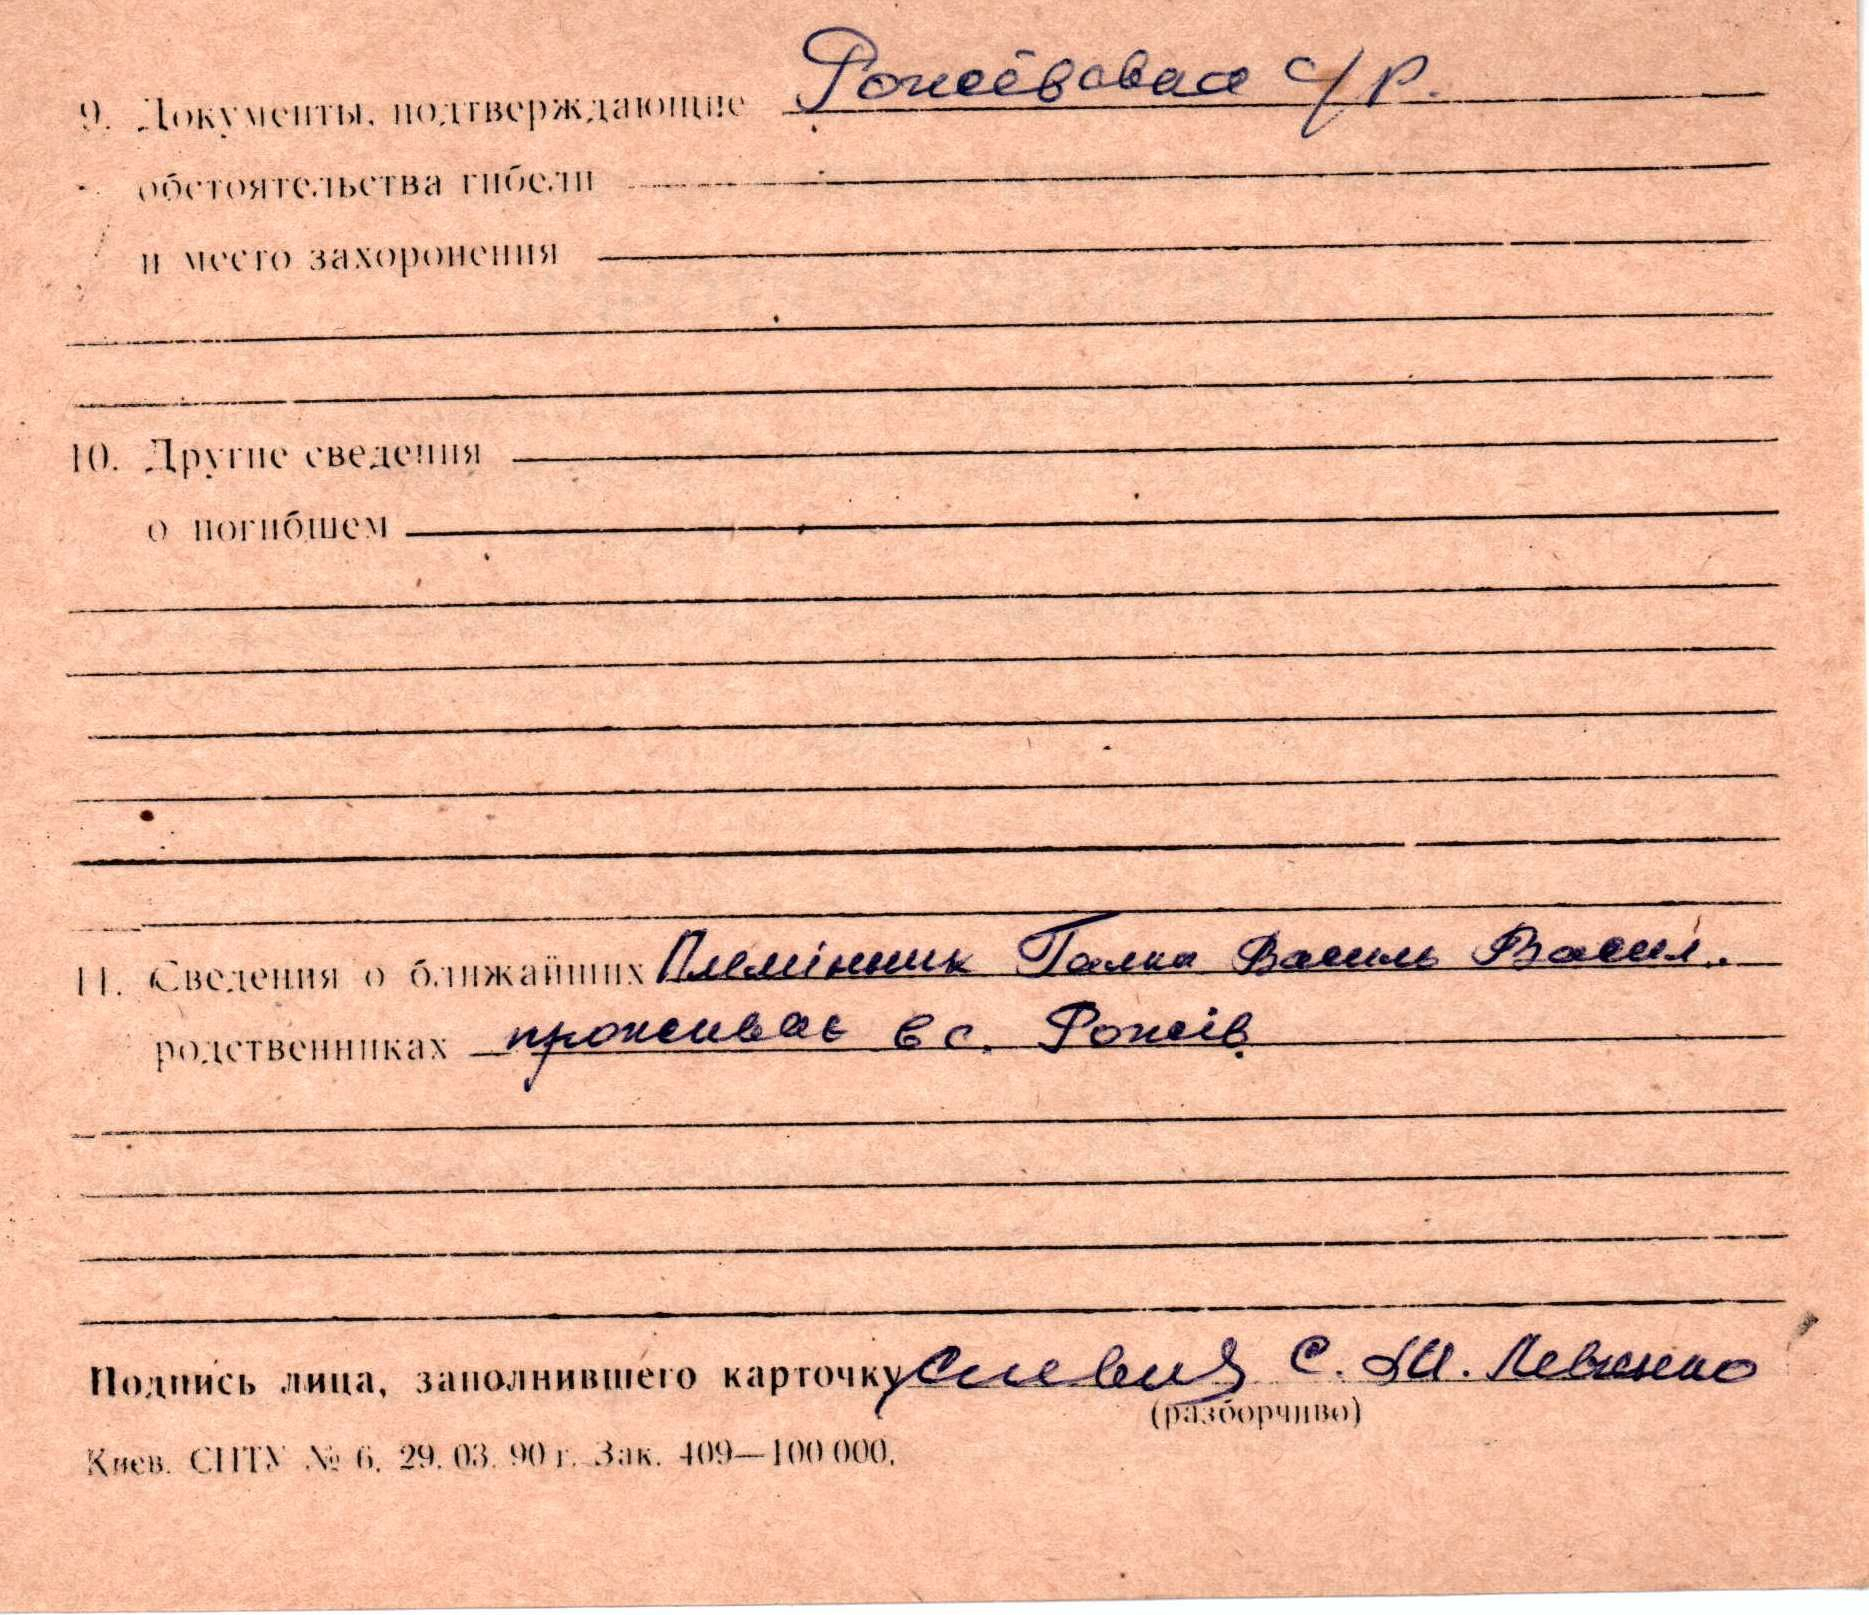 9. Документы, подтверждающие Рожёвская с/р.
обстоятельства гибели
и место захоронения
10. Другие сведения
о погибшем
11. Сведения о ближайших Племінник Галка Василь Васил.
родственниках проживає в с. Рожів
Подпись лица, заполнившего карточку С. М. Левченко
(разборчиво)
Киев. СПТУ № 6. 29. 03. 90 г. Зак. 409—100 000.